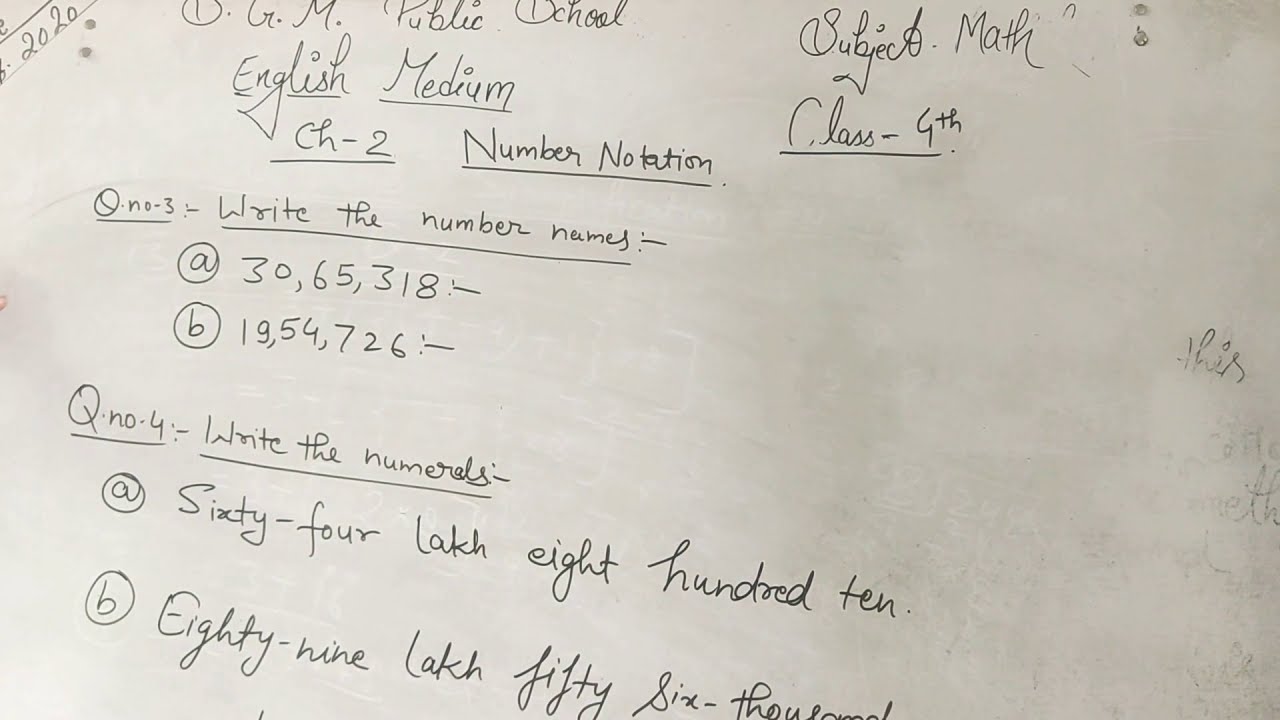 2020
D. G. M. Public School
Subject. Math
English Medium
Class - 4th.
Ch-2 Number Notation.
Q.no-3:- Write the number names:-
(a) 30,65,318:-
(b) 19,54,726:-
this
Q.no.4:- Write the numerals:-
(a) Sixty-four lakh eight hundred ten.
(b) Eighty-nine lakh fifty six-thousand